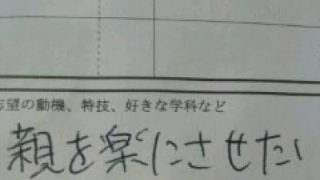 志望の動機、特技、好きな学科など
親を楽にさせたい